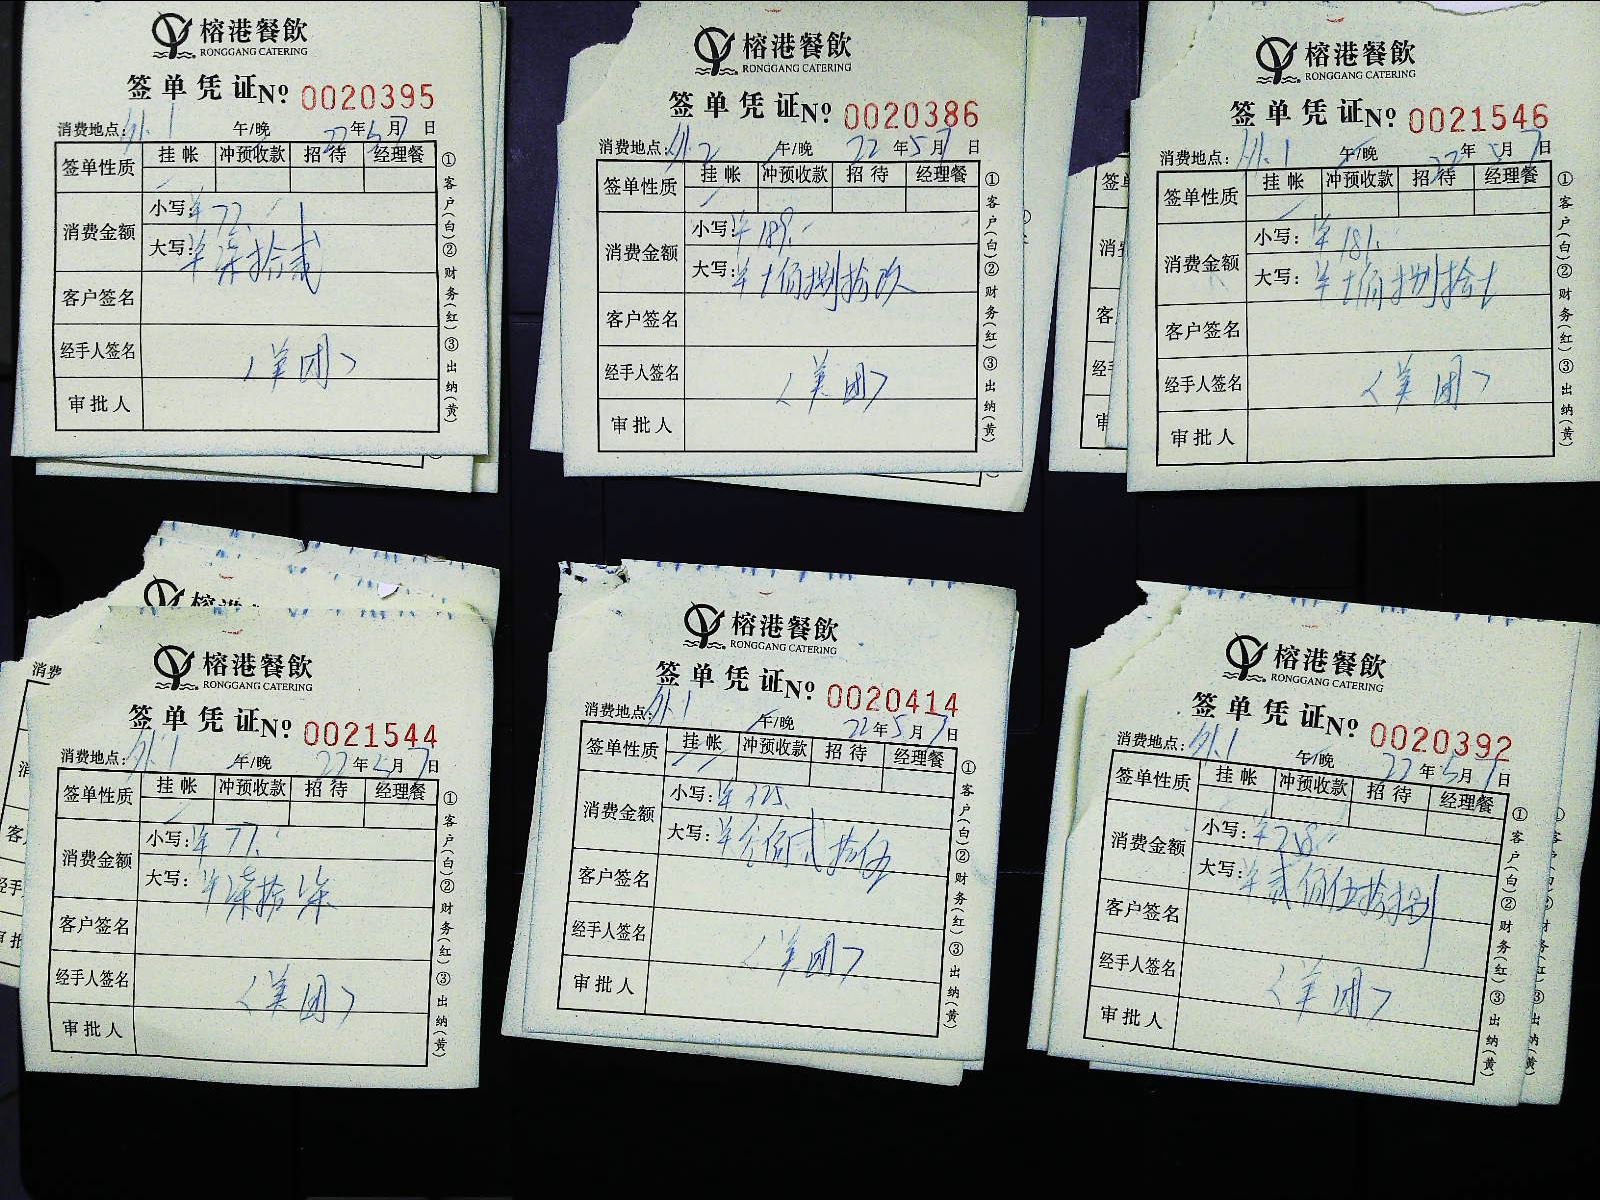 榕港餐飲
RONGGANG CATERING
签单凭证 Nº 0020395
消费地点: 外1 午/晚 22年5月7日
签单性质 挂帐 冲预收款 招待 经理餐
消费金额
小写: ¥72.
大写: ¥柒拾贰
客户签名
经手人签名 〈美团〉
审批人
①客户(白)②财务(红)③出纳(黄)
榕港餐飲
RONGGANG CATERING
签单凭证 Nº 0020386
消费地点: 外2 午/晚 22年5月7日
签单性质 挂帐 冲预收款 招待 经理餐
消费金额
小写: ¥189.-
大写: ¥壹佰捌拾玖
客户签名
经手人签名 〈美团〉
审批人
①客户(白)②财务(红)③出纳(黄)
榕港餐飲
RONGGANG CATERING
签单凭证 Nº 0021546
消费地点: 外1 午/晚 22年5月7日
签单性质 挂帐 冲预收款 招待 经理餐
消费金额
小写: ¥181.
大写: ¥壹佰捌拾壹
客户签名
经手人签名 〈美团〉
审批人
①客户(白)②财务(红)③出纳(黄)
榕港餐飲
RONGGANG CATERING
签单凭证 Nº 0021544
消费地点: 外1 午/晚 22年5月7日
签单性质 挂帐 冲预收款 招待 经理餐
消费金额
小写: ¥77.
大写: ¥柒拾柒
客户签名
经手人签名 〈美团〉
审批人
①客户(白)②财务(红)③出纳(黄)
榕港餐飲
RONGGANG CATERING
签单凭证 Nº 0020414
消费地点: 外1 午/晚 22年5月7日
签单性质 挂帐 冲预收款 招待 经理餐
消费金额
小写: ¥325.
大写: ¥叁佰贰拾伍
客户签名
经手人签名 〈美团〉
审批人
①客户(白)②财务(红)③出纳(黄)
榕港餐飲
RONGGANG CATERING
签单凭证 Nº 0020392
消费地点: 外1 午/晚 22年5月7日
签单性质 挂帐 冲预收款 招待 经理餐
消费金额
小写: ¥258.-
大写: ¥贰佰伍拾捌
客户签名
经手人签名 〈美团〉
审批人
①客户(白)②财务(红)③出纳(黄)